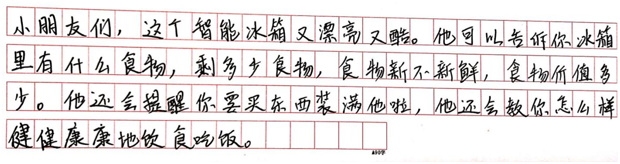 小朋友们，这个智能冰箱又漂亮又酷。他可以告诉你冰箱
里有什么食物，剩多少食物，食物新不新鲜，食物价值多
少。他还会提醒你要买东西装满他啦，他还会教你怎么样
健健康康地饮食吃饭。